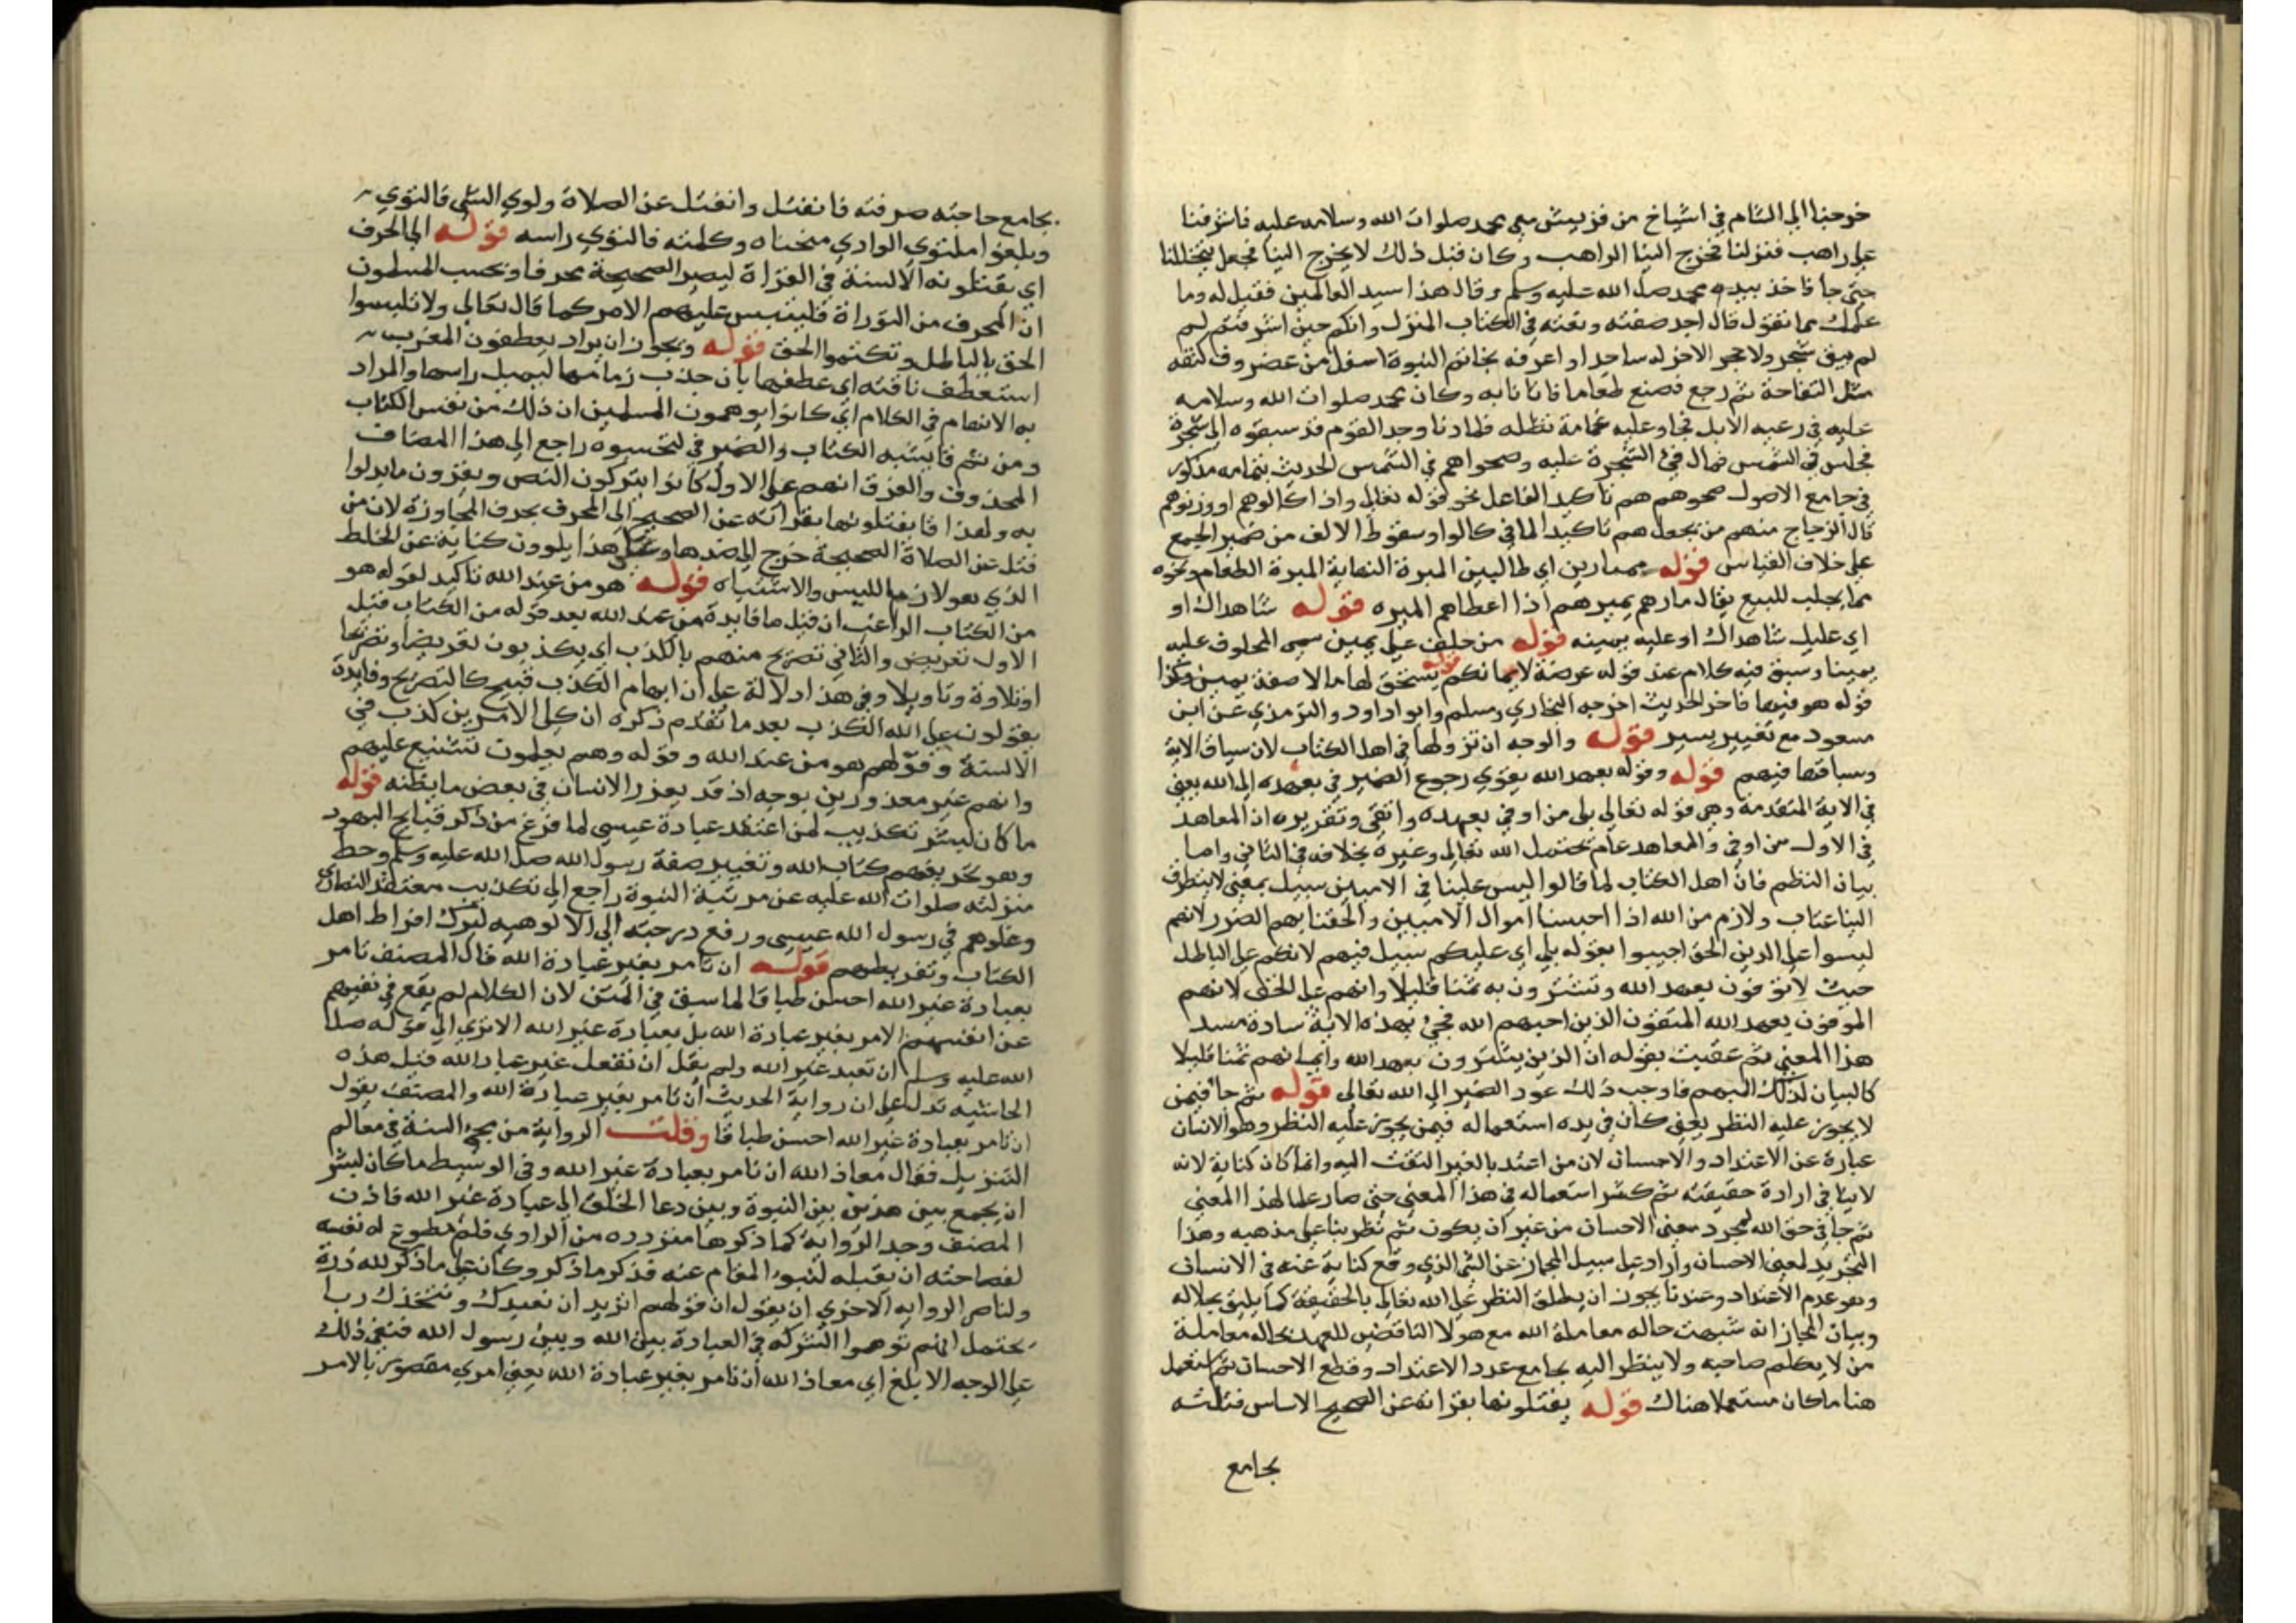 خرجنا الي الشام في اشياخ من قريش معي محمد صلوات الله وسلامه عليه فاشرفنا
علي راهب فنزلنا فخرج الينا الراهب وكان قبل ذلك لا يخرج الينا فجعل يتخللنا
حتي جا فاخذ بيده محمد صلي الله عليه وسلم وقال هذا سيد العالمين فقيل له وما
علمك بما تقول قال اجد صفته ونعته في الكتاب المنزل وانكم حين اشرفتم لم
لم يبق شجر ولا حجر الا خر له ساجدا واعرفه بخاتم النبوة اسفل من غضروف كتفه
مثل التفاحة ثم رجع فصنع طعاما فاتانا به وكان محمد صلوات الله وسلامه
عليه في رعيه الابل فجا وعليه غمامة تظله فلما دنا وجد القوم قد سبقوه الي شجرة
فجلس في الشمس فمال فيء الشجرة عليه وضحواهم في الشمس الحديث بتمامه مذكور
في جامع الاصول ضحوهم هم تاكيد الفاعل نحو قوله تعالي واذا كالوهم او وزنوهم
قال الزجاج منهم من يجعل هم تاكيدا لما في كالوا وسقوط الالف من ضمير الجمع
علي خلاف القياس قوله ممتارين اي طالبين الميرة النهاية الميرة الطعام ونحوه
مما يجلب للبيع يقال مارهم يميرهم اذا اعطاهم الميره قوله شاهداك او
اي عليك شاهداك او عليه يمينه قوله من حلف علي يمين سمي المحلوف عليه
يمينا وسبق فيه كلام عند قوله عرضة لايمانكم قوله يستحق لها مالا صفة يمين وكذا
قوله هو فيها فاجر الحديث اخرجه البخاري ومسلم وابو داود والترمذي عن ابن
مسعود مع تغيير يسير قوله والوجه ان نزولها في اهل الكتاب لان سياق الاية
وسباقها فيهم قوله وقوله بعهد الله يقوي رجوع الضمير في بعهده الي الله يعني
في الاية المتقدمة وهي قوله تعالي بلي من اوفي بعهده واتقي وتقريره ان المعاهد
في الاول من اوفي والمعاهد عام يحتمل الله تعالي وغيره بخلافه في الثاني واما
بيان النظم فان اهل الكتاب لما قالوا ليس علينا في الاميين سبيل بمعني لا يتطرق
الينا عتاب ولازم من الله اذا احبسنا اموال الاميين والحقنا بهم الضرر لانهم
ليسوا علي الدين الحق اجيبوا بقوله بلي اي عليكم سبيل فيهم لانكم علي الباطل
حيث لا توفون بعهد الله وتشترون به ثمنا قليلا وانهم علي الحق لانهم
الموفون بعهد الله المتقون الذين احبهم الله فجيء بهذه الاية سادة مسد
هذا المعني ثم عقبت بقوله ان الذين يشترون بعهد الله وايمانهم ثمنا قليلا
كالبيان لذلك المبهم فاوجب ذلك عود الضمير الي الله تعالي قوله ثم جا فيمن
لا يجوز عليه النظر يعني كان في بده استعماله فيمن يجوز عليه النظر وهو الانسان
عبارة عن الاعتداد والاحسان لان من اعتد بالغير التفت اليه وانما كان كناية لانه
لا ينافي ارادة حقيقته ثم كثر استعماله في هذا المعني حتي صار علما لهذا المعني
ثم جا في حق الله لمجرد معني الاحسان من غير ان يكون ثم نظر بنا علي مذهبه وهذا
التجريد لمعني الاحسان واراد علي سبيل المجاز عن الشي الذي وقع كناية عنه في الانسان
وهو عدم الاعتداد وعندنا يجوز ان يطلق النظر علي الله تعالي بالحقيقة كما يليق بجلاله
وبيان المجاز انه شبهت حاله معاملة الله مع هولا الناقضين للعهد بحاله معاملة
من لا يكلم صاحبه ولا ينظر اليه بجامع عدد الاعتداد وقطع الاحسان ثم استعمل
هنا ما كان مستعملا هناك قوله يفتلونها بقراته عن الصحيح الاساس فتلته
بجامع
بجامع حاجته صرفته فانفتل وانفتل عن الصلاة ولوي الشي فالتوي
وبلغوا ملتوي الوادي منحناه وكلمته فالتوي راسه قوله الي المحرف
اي يفتلونه الالسنة في القراة ليصير الصحيحة محرفا ويحسب المسلمون
ان المحرف من التوراة فليلبس عليهم الامر كما قال تعالي ولا تلبسوا
الحق بالباطل وتكتموا الحق قوله ويجوز ان يراد يعطفون المغرب
استعطف ناقته اي عطفها بان جذب زمامها ليميل راسها والمراد
به الانهام في الكلام اي كانوا يوهمون المسلمين ان ذلك من نفس الكتاب
ومن ثم قال بشبه الكتاب والضمير في لتحسبوه راجع الي هذا المضاف
المحذوف والفرق انهم علي الاول كانوا يتركون النص ويقرون ما بدلوا
به ولهذا قا يفتلونها بقراته عن الصحيح الي المحرف بحرف المجاوزة لان من
فتل عن الصلاة الصحيحة خرج الي ضدها وعلي هذا يلوون كناية عن الخلط
الذي هو لازم اللبس والاشتباه قوله هو من عند الله تاكيد لقوله هو
من الكتاب الراغب ان قيل ما فايدة من عند الله بعد قوله من الكتاب قيل
الاول تعريض والثاني تصريح منهم بالكذب اي يكذبون تعريضا وتصريحا
او تلاوة وتاويلا وفي هذا دلالة علي ان ابهام الكذب قبيح كالتصريح وفايدة
يقولون علي الله الكذب بعد ما تقدم ذكره ان كلي الامرين كذب في
الالسنة وقولهم هو من عند الله وقوله وهم يعلمون تشنيع عليهم
وانهم غير معذورين بوجه اذ قد يعذر الانسان في بعض ما يظنه قوله
ما كان لبشر تكذيب لمن اعتقد عبادة عيسي لما فرغ من ذكر قبايح اليهود
وهو تحريفهم كتاب الله وتغيير صفة رسول الله صلي الله عليه وسلم وحط
منزلته صلوات الله عليه عن مرتبة النبوة راجع الي تكذيب معتقد النصاري
وغلوهم في رسول الله عيسي ورفع درجته الي الالوهيه ليترك افراط اهل
الكتاب وتفريطهم قوله ان نامر بغير عبادة الله قال المصنف نامر
بعبادة غير الله احسن طباقا لما سبق في المتن لان الكلام لم يقع في نفيهم
عن انفسهم الامر بغير عبادة الله بل بعبادة غير الله الا تري الي قوله صلي
الله عليه وسلم ان نعبد غير الله ولم يقل ان نفعل غير عباد الله قيل هذه
الحاشيه تدل علي ان رواية الحديث ان نامر بغير عبادة الله والمصنف يقول
ان نامر بعبادة غير الله احسن طباقا وقلت الرواية من محيي السنة في معالم
التنزيل فقال معاذ الله ان نامر بعبادة غير الله وفي الوسيط ما كان لبشر
ان يجمع بين هذين بين النبوة وبين دعا الخلق الي عبادة غير الله فاذن
المصنف وجد الرواية كما ذكرها من الراوي فلم تطوع له نفسه
لفصاحته ان يقبله لنبو المقام عنه فذكر ما ذكر وكان علي ما ذكر لله دره
ولناصر الروايه الاخري ان يقول ان قولهم اتريد ان نعبدك ونتخذك ربا
يحتمل انهم توهموا الشركه في العبادة بين الله وبين رسول الله فنفي ذلك
علي الوجه الابلغ اي معاذ الله ان نامر بغير عبادة الله يعني امري مقصور بالامر